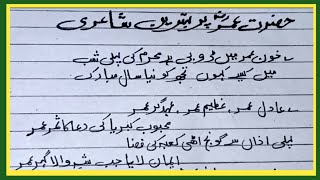 حضرت عمرؓ پر بہترین شاعری
۔ خون عمر میں ڈوبی ہے محرم کی پہلی شب
میں کیسے کہوں تجھ کو نیا سال مبارک
۔ عادل عمر، عظیم عمر،
محبوب کبریا کی دعا کا ثمر عمر
پہلی اذاں سے گونج اٹھی کعبہ کی فضا
ایمان لایا جب شہ والا گہر عمر